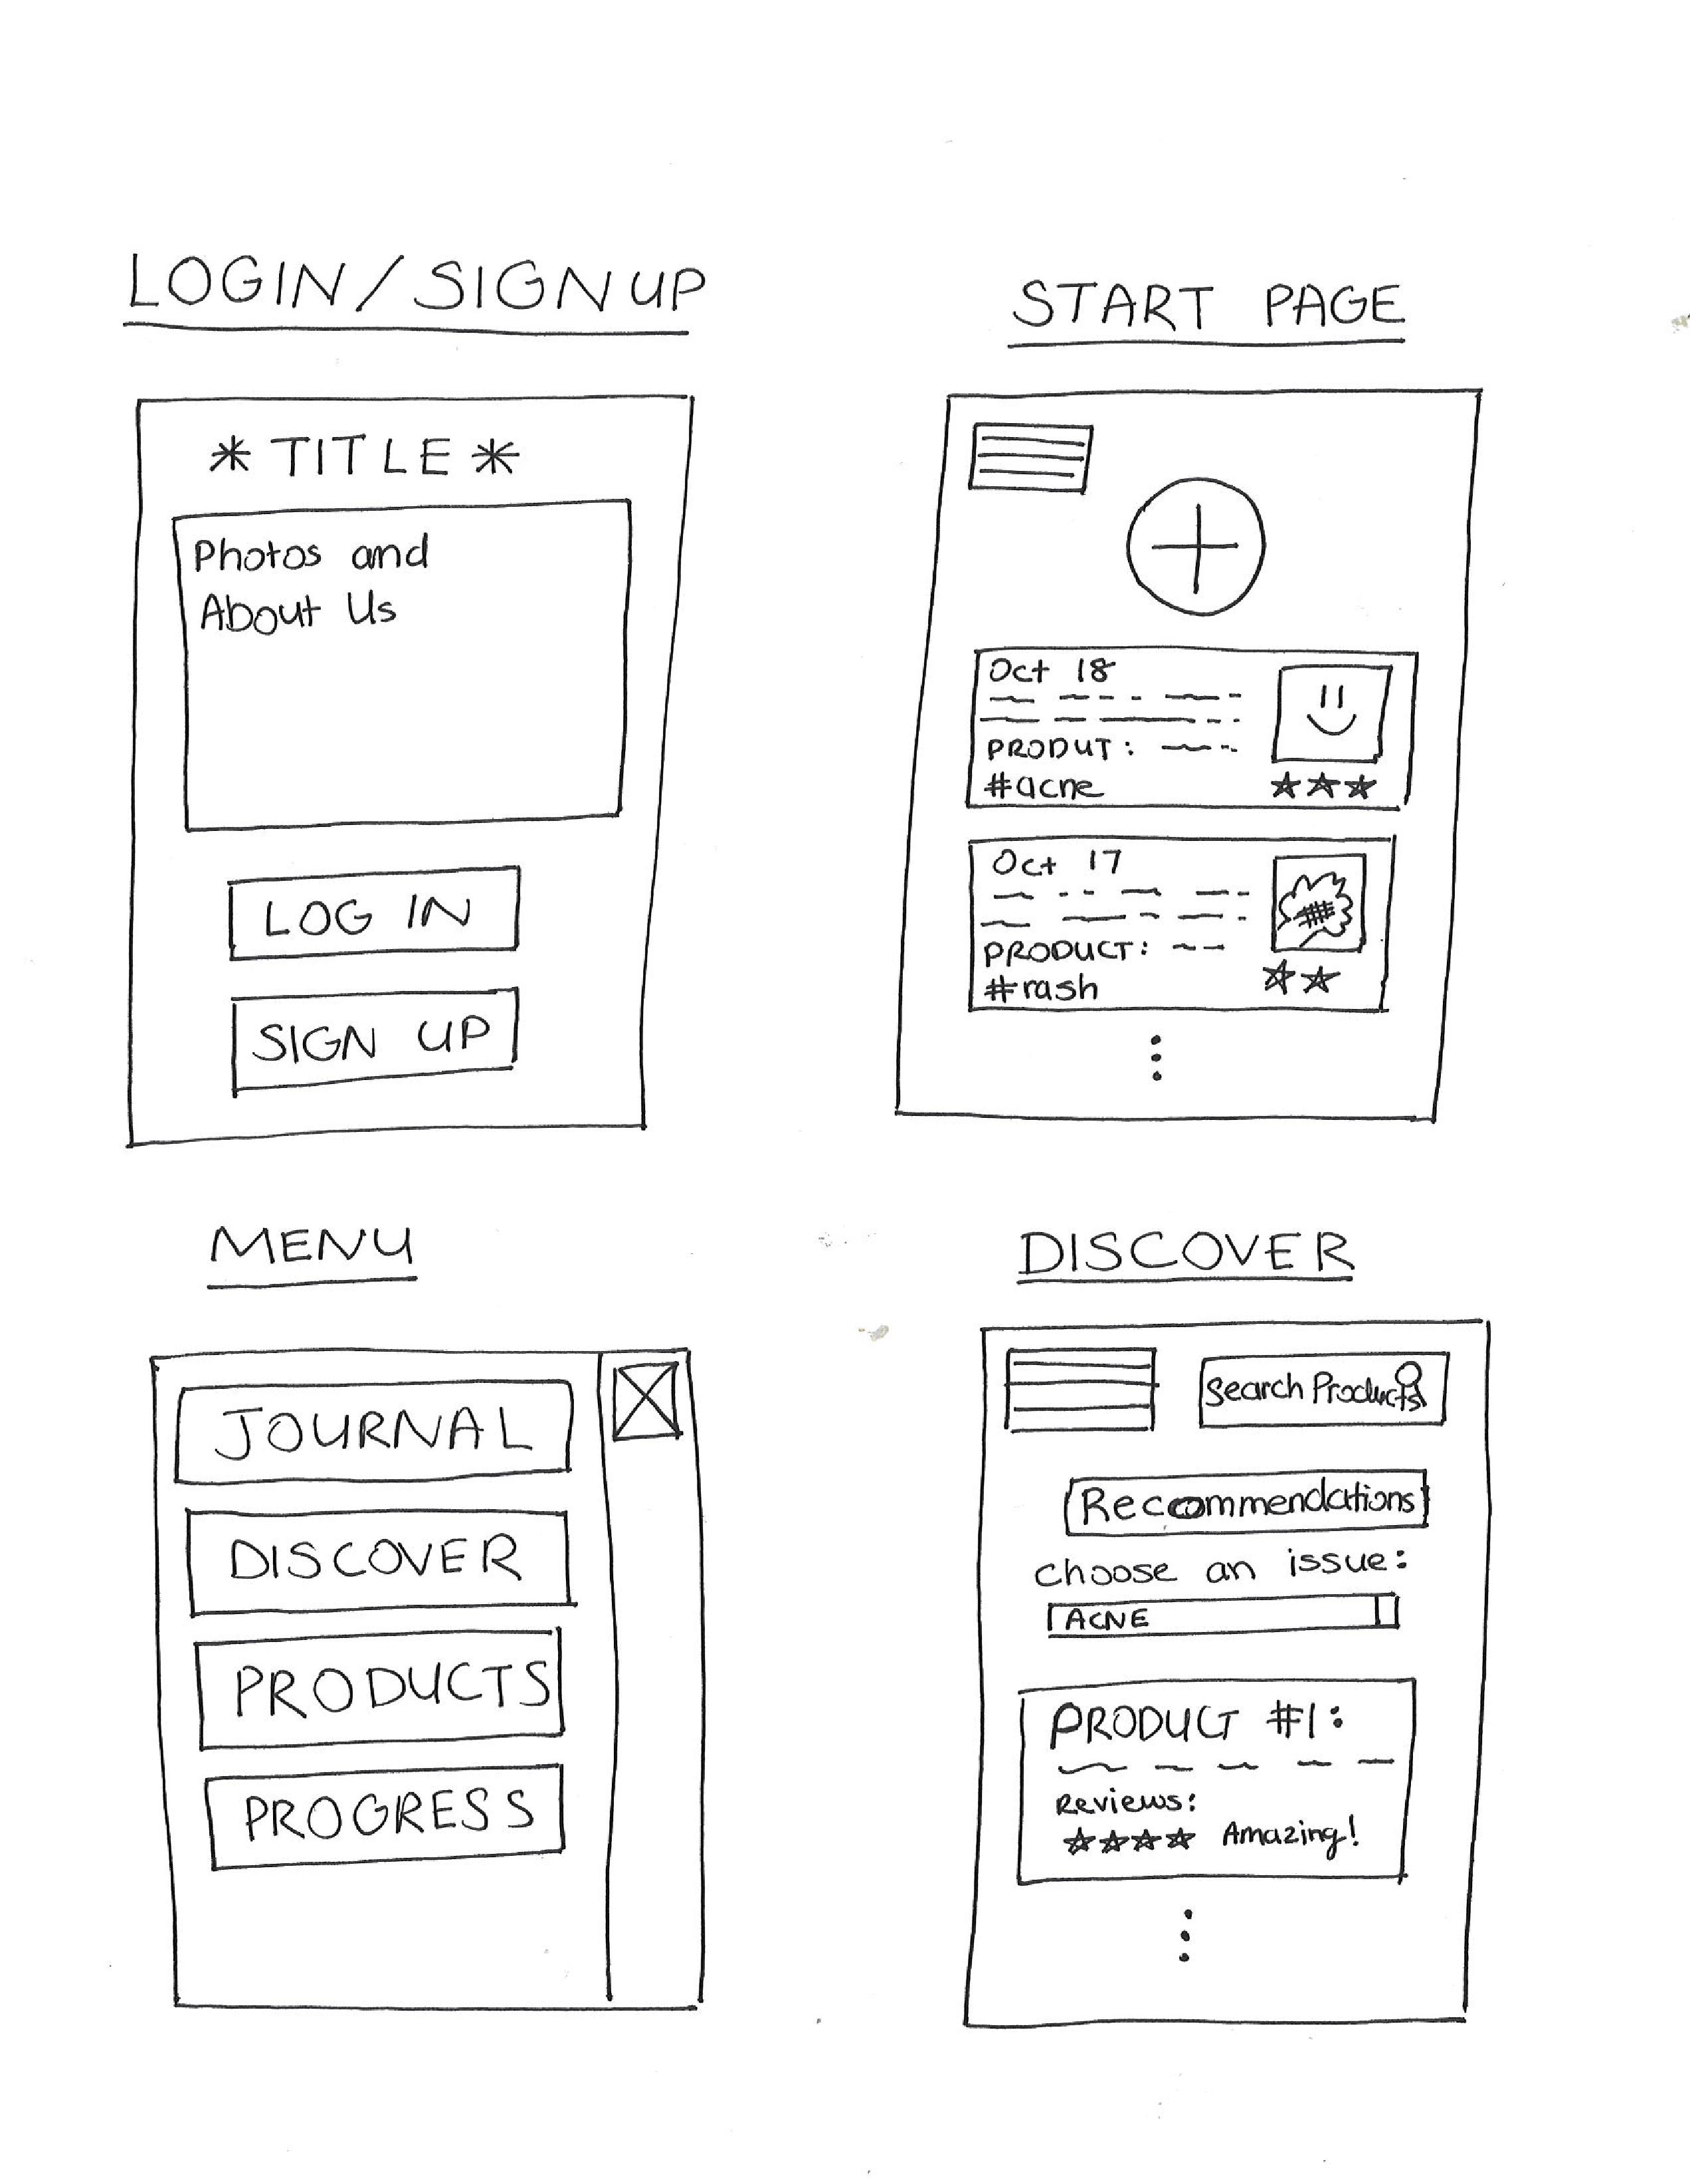 LOGIN/SIGN UP
* TITLE *
Photos and
About Us
LOG IN
SIGN UP
START PAGE
Oct 18
PRODUT:
#acne
Oct 17
PRODUCT:
#rash
MENU
JOURNAL
DISCOVER
PRODUCTS
PROGRESS
DISCOVER
Search Products
Recommendations
choose an issue:
ACNE
PRODUCT #1:
Reviews:
Amazing!